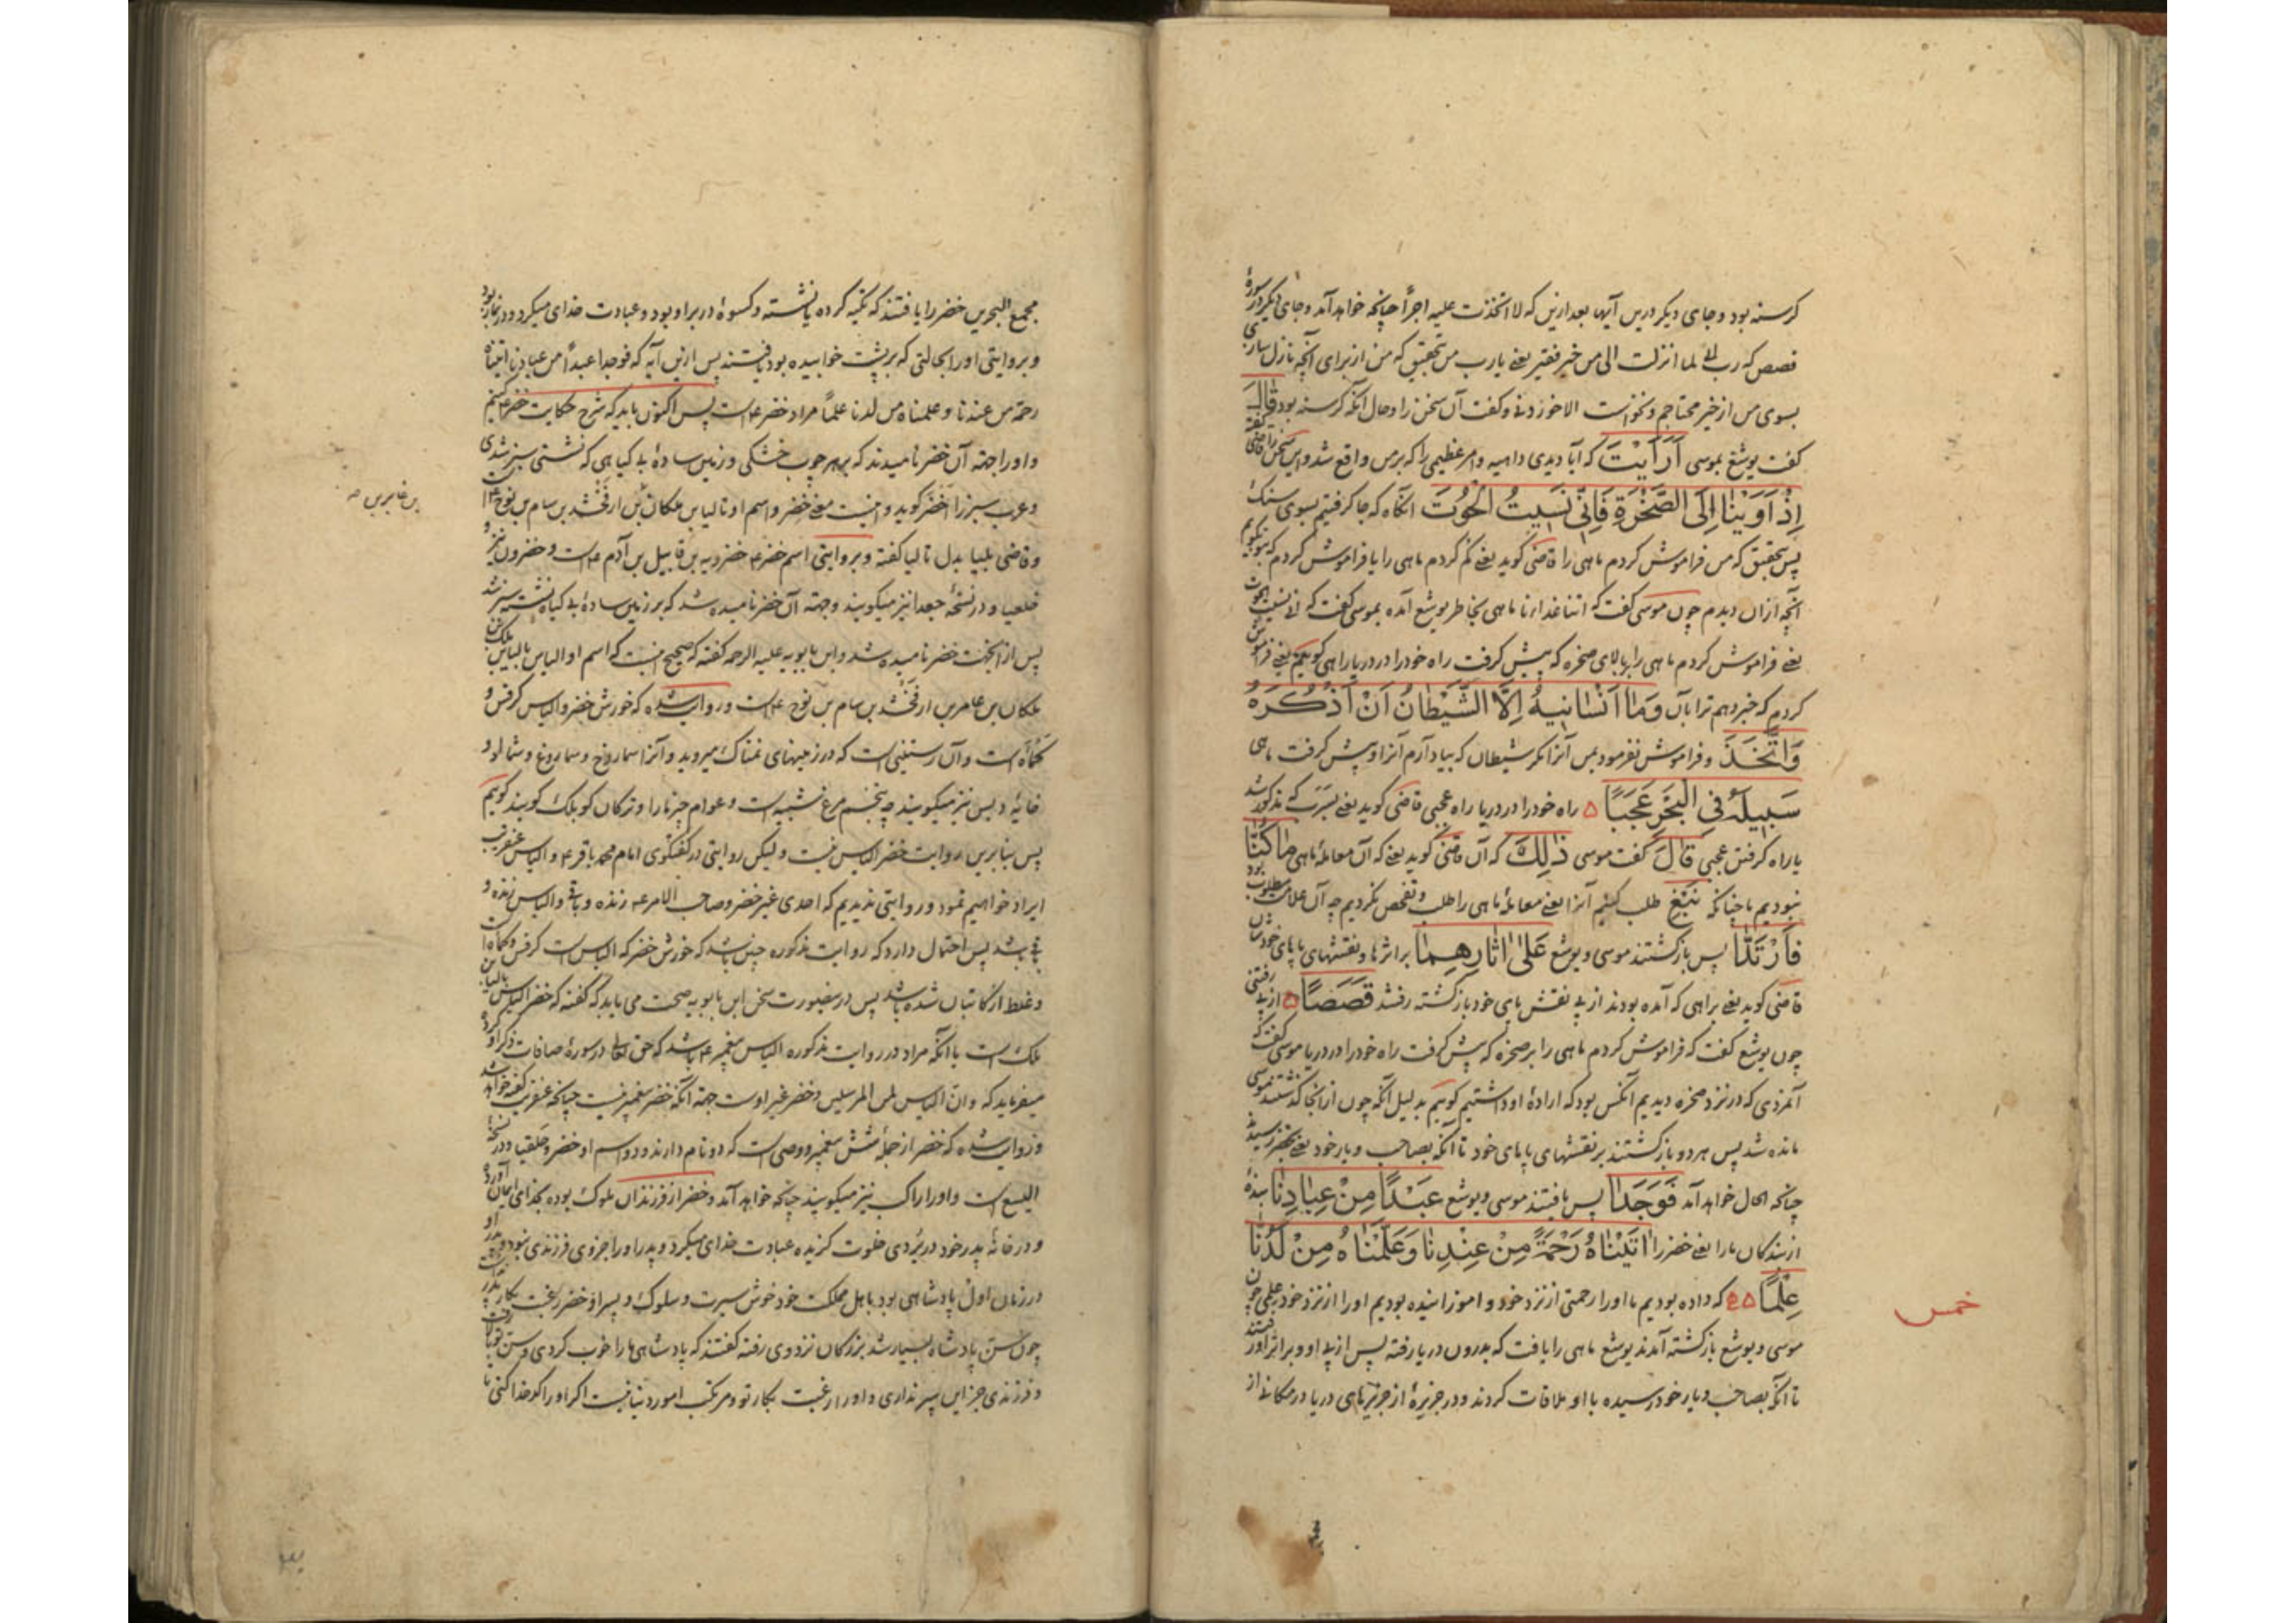 کرسنه بود و جای دیکر درین آیها بعد ازین که لاتخذت علیه اجراً چنانچه خواهد آمد و جای دیکر در سورهٔ
قصص که رب انی لما انزلت الی من خیر فقیر یعنے یارب من بتحقیق که من از برای آنچه نازل سازی
بسوی من از خیر محتاجم و نخواست الا خوردنی و کفت آن سخن را و حال آنکه کرسنه بود قَالَ
کفت یوشع بموسی اَرَاَیْتَ که آیا دیدی داهیه و امر عظیمی را که بر من واقع شد و این سخن را قاضی کفته
اِذْ اَوَیْنَا اِلَی الصَّخْرَةِ فَاِنّی نَسِیتُ الْحُوتَ آنکاه که جا کرفتیم بسوی سنک
پس بتحقیق که من فراموش کردم ماهی را قاضی کوید یعنے کم کردم ماهی را یا فراموش کردم که بتو بکویم
آنچه ازان دیدم چون موسی کفت که اتنا غداءنا ماهی بخاطر یوشع آمده بموسی کفت که انی نسیت الحوت
یعنے فراموش کردم ماهی را ببالای صخره که پیش کرفت راه خود را در دریا راهی کوئیم یعنے فراموش
کردم که خبر دهم ترا بآن وَمَا اَنْسَانِیهُ اِلَّا الشَّیْطَانُ اَنْ اَذْکُرَهُ
وَاتَّخَذَ و فراموش نفرمود بمن آنرا مکر شیطان که بیاد آرم آنرا و پیش کرفت ماهی
سَبِیلَهُ فِی الْبَحْرِ عَجَبًا ۵ راه خود را در دریا راه عجبی قاضی کوید یعنے بسَرَب که مذکور شد
یا راه کرفتن عجبی قَالَ کفت موسی ذٰلِكَ که آن قاضی کوید یعنے که آن معاملهٔ ماهی مَا کُنَّا
نبودیم ما چنانکه نَبْغِ طلب کنیم آنرا یعنے معاملهٔ ماهی را طلب و تفحص نکردیم چه آن علامت مطلوب بود
فَارْتَدَّا پس بازکشتند موسی و یوشع عَلٰی اٰثَارِهِمَا بر اثرها و نقشهای پاپای خودشان
قاضی کوید یعنے براهی که آمده بودند از پی نقش پای خود بازکشته رفتند قَصَصًا ۵ از پی رفتنی
چون یوشع کفت که فراموش کردم ماهی را بر صخره که پیش کرفت راه خود را در دریا موسی کفت که
آنمردی که در نزد صخره دیدیم آنکس بود که ارادهٔ او داشتیم کوئیم بدلیل آنکه چون ازانجا کذشتند موسی
مانده شد پس هر دو بازکشتند بر نقشهای پاپای خود تا آنکه بصاحب و یار خود یعنے بخضر رسیدند
چنانکه الحال خواهد آمد فَوَجَدَا پس یافتند موسی و یوشع عَبْدًا مِنْ عِبَادِنَا بندهٔ
از بندکان ما را یعنے خضر را اٰتَیْنَاهُ رَحْمَةً مِنْ عِنْدِنَا وَعَلَّمْنَاهُ مِنْ لَدُنَّا
عِلْمًا ۵ که داده بودیم ما اورا رحمتی از نزد خود و اموزانیده بودیم اورا از نزد خود علمی چون
موسی و یوشع بازکشته آمدند یوشع ماهی را یافت که بدرون دریا رفته پس از پی او و بر اثر او رفتند
تا آنکه بصاحب و یار خود رسیده با او ملاقات کردند و در جزیرهٔ از جزیرهای دریا در مکانی از
خمس
مجمع البحرین خضر را یافتند که تکیه کرده یا نشسته و کسوهٔ در بر او بود و عبادت خدای میکرد و در نماز بود
و بروایتی اورا بحالتی که بر پشت خوابیده بود یافتند پس ازین آیه که فوجدا عبداً من عبادنا اتیناه
رحمة من عندنا و علمناه من لدنا علماً مراد خضر ع است پس اکنون باید که شرح حکایت خضر ع کنیم
و اورا جهة آن خضر نامیدند که بر هر چوب خشکی و زمین سادهٔ بی کیاهی که نشستی سبز شدی
و عرب سبز را اَخضَر کوید و اینست معنے خضر و اسم او تالیا بن ملکان بن ارفخشد بن سام بن نوح ع است
بن عابر بن صح
و قاضی بلیا بدل تالیا کفته و بروایتی اسم خضر ع خضرویه بن قابیل بن آدم ع است و خضرون نیز و
خلعبا و در نسخهٔ جعدا نیز میکویند و جهة آن خضر نامیده شد که بر زمین سادهٔ بی کیاه نشسته سبز شد
پس ازینجهت خضر نامیده شد و ابن بابویه علیه الرحمه کفته که صحیح اینست که اسم او الیاس یا بالیاس بن ملک بن
ملکان بن عامر بن ارفخشد بن سام بن نوح ع است و روایت شده که خورش خضر و الیاس کرفس و
کمأه است و آن رستنی است که در زمینهای نمناک میروید و آنرا سماروخ و سماروغ و شمالو و
خایهٔ دیس نیز میکویند چه بتخم مرغ شبیه است و عوام چترمارا و ترکان کوبلک کویند کوئیم
پس بنابرین روایت خضر الیاس نیست و لیکن روایتی در کفتکوی امام محمد باقر ع و الیاس عنقریب
ایراد خواهیم نمود و روایتی ندیدیم که احدی غیر خضر و صاحب الامر ع زنده و باقی و الیاس زنده و
باقی باشد پس احتمال دارد که روایت مذکوره چنین باشد که خورش خضر که الیاس است کرفس و کماه است
و غلط از کاتبان شده باشد پس درینصورت سخن ابن بابویه صحت می یابد که کفته که خضر الیاس یا بالیاس بن
ملک است یا آنکه مراد در روایت مذکوره الیاس پیغمبر ع باشد که حق تعالی در سورهٔ صافات ذکر او کرده
میفرماید که و ان الیاس لمن المرسلین و خضر غیر اوست جهة آنکه خضر پیغمبر نیست چنانکه عنقریب کفته خواهد شد
و روایت شده که خضر از جملهٔ شش پیغمبر و وصی است که دو نام دارند و دو اسم او خضر و حلقیا و در نسخهٔ
الیسع است و اورا اراک نیز میکویند چنانچه خواهد آمد و خضر از فرزندان ملوک بوده بخدای ایمان آورده
و در خانهٔ پدر خود در نزدی خلوت کزیده عبادت خدای میکرد و پدر اورا جز وی فرزندی نبود و پدر او
در زمان اول پادشاهی بود باهل مملکت خود خوش سیرت و سلوک و پسر او خضر رغبت بکار پدر
چون سن پادشاه بسیار شد بزرکان نزد وی رفته کفتند که پادشاهی مارا خوب کردی و سن تو بالا رفت
و فرزندی جز این پسر نداری و اورا رغبت بکار تو و مرتکب امور دنیا نیست اکر اورا کدخدا کنی تا